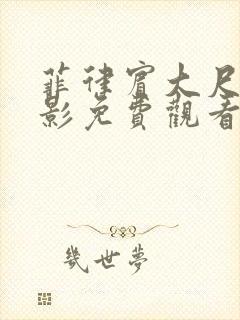 菲律賓大尺
影免費觀看
幾世夢